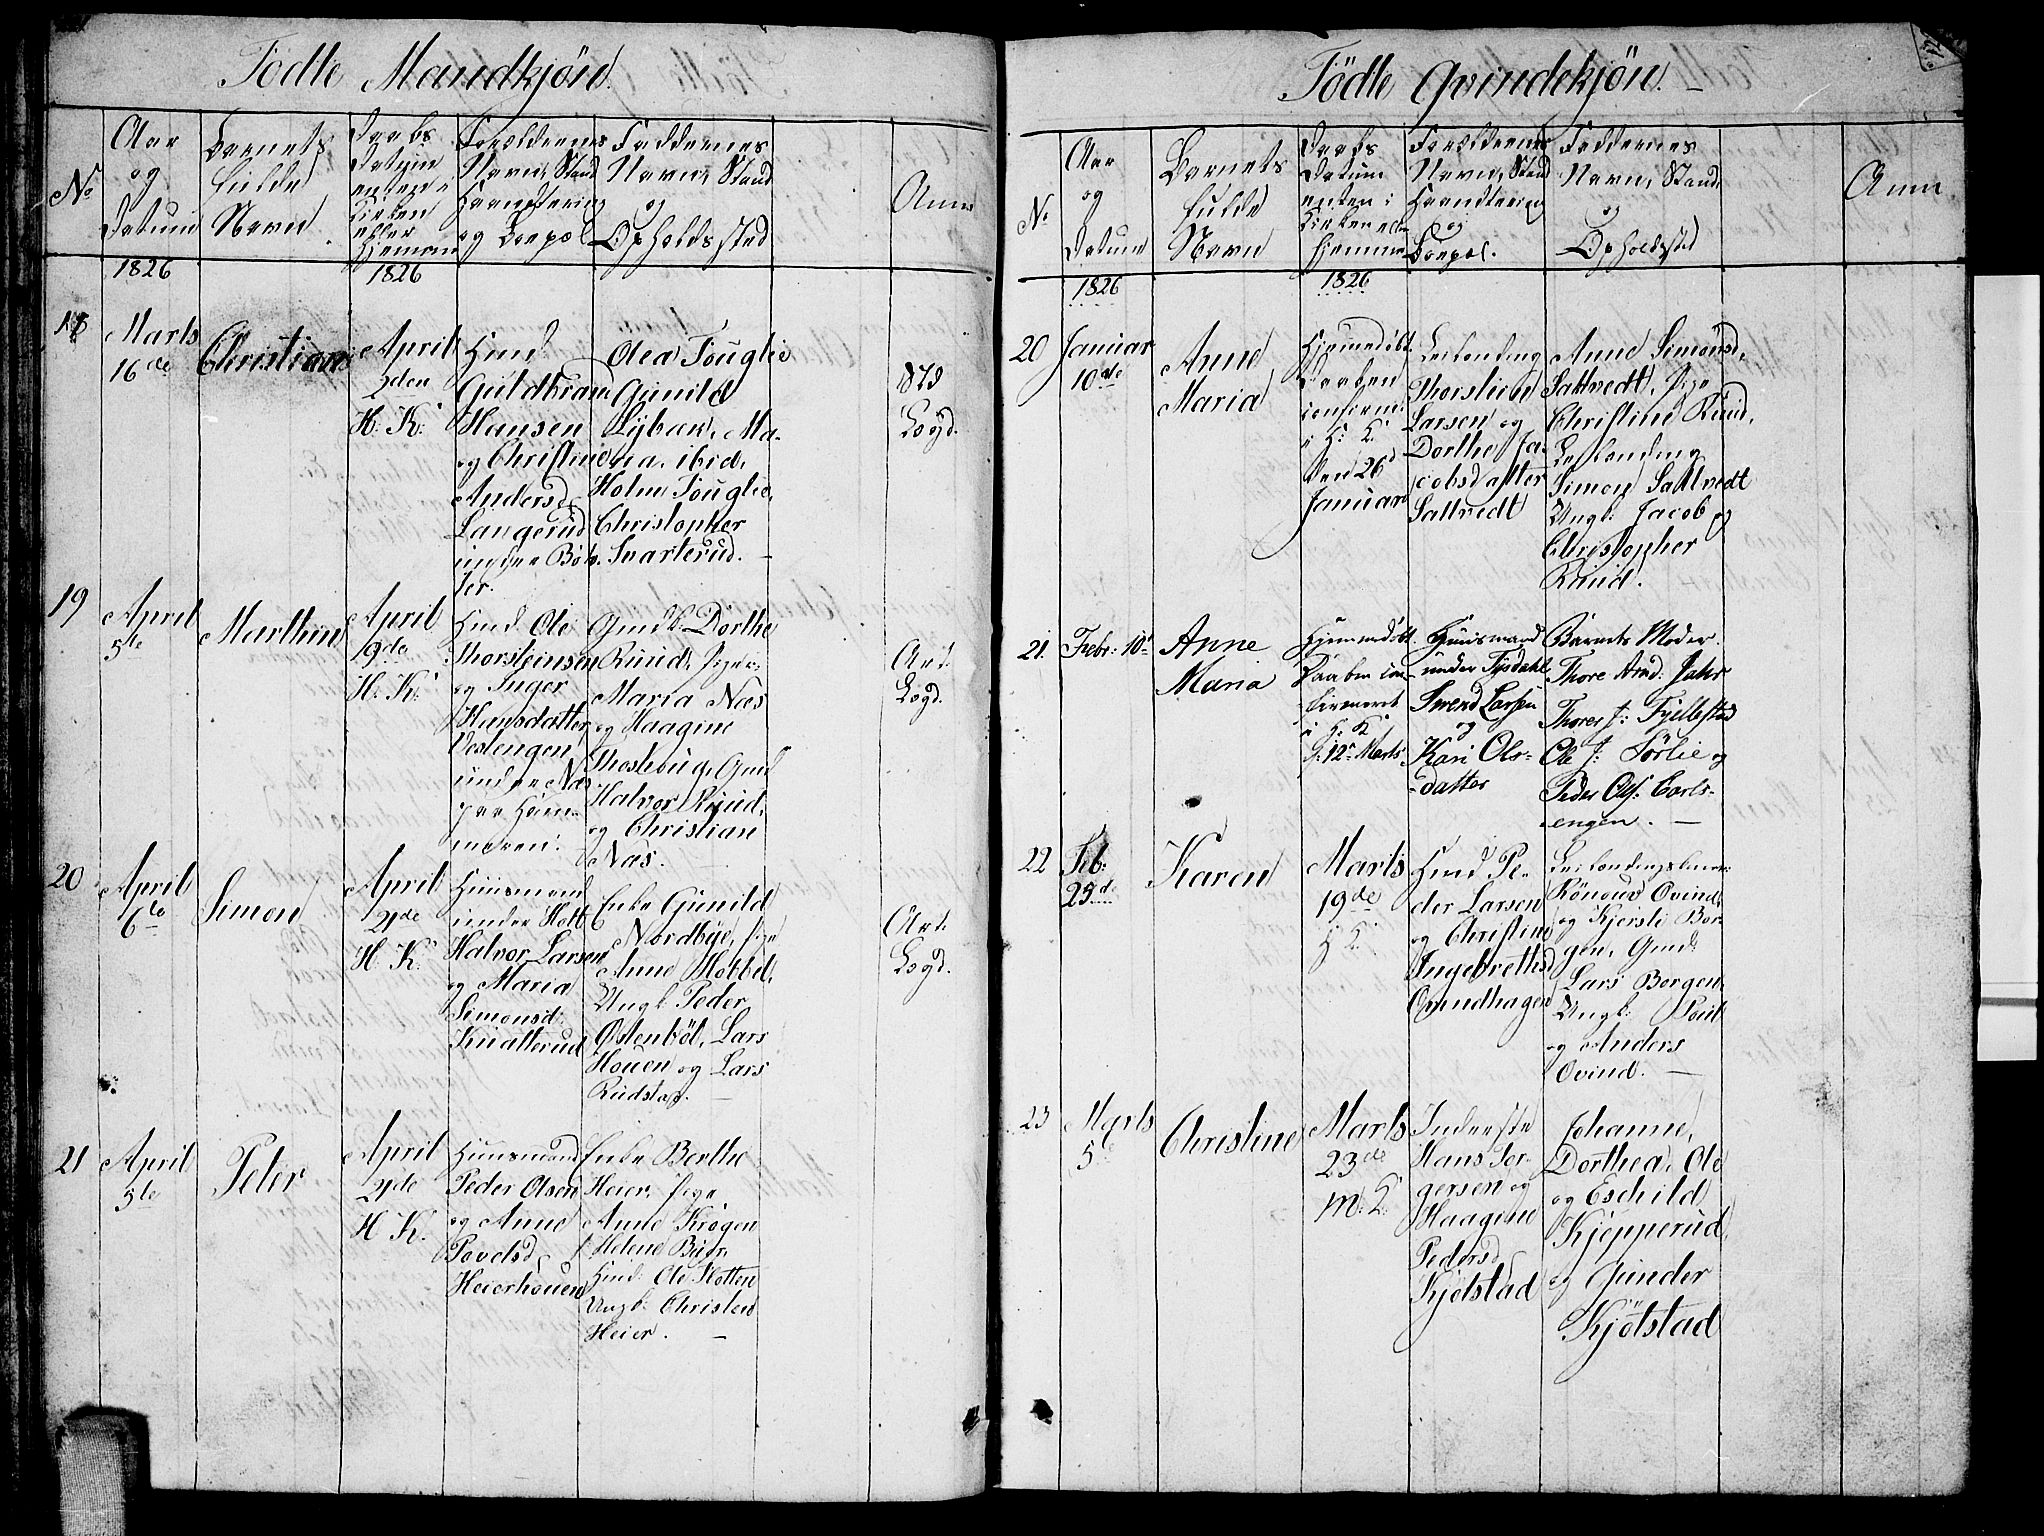 Födte Mandkjön.
No
Aar
og
Datum
Barnets
fulde
Navn
Daabs
Datum
enten i
Kirken
eller
Hjemme
Forældrenes
Navn, Stand
Haandtering
og Boepæl
Faddernes
Navn, Stand
og
Opholdssted
Anm
1826
1826
18
Marts
16de
Christian
April
2den
H: K:
Huusd
Guldbrand
Hansen
og Christine
Andersd
Langerud
under Böh-
ler.
Olea Fouglie
Gunild
Lybæk, Ma-
ria ibid,
Holm Fouglie,
Christopher
Svarterud. —
19
April
5te
Marthin
April
19de
H: K:
Huusd. Ole
Thorsteinsen
og Inger
Hansdatter
Vestengen
under Næs
paa Ham-
meren.
Gmdk Dorthe
Ruud, Piger
Maria Næs
og Haagine
Gmd
Halvor Ruud,
og Christian
Næs.
Art:
Logd.
20
April
6te
Simon
April
21de
H: K:
Huusmand
under Holt
Halvor Larsen
og Maria
Simonsd:
Knatterud
Enke Gunild
Nordbye, Pige
Anne Holtet,
Ungk: Peder
Östenböl, Lars
Houen og Lars
Rudstag. —
Art:
Logd.
21
April
5te
Peter
April
21de
H K:
Huusmand
Peder Olsen
og Anne
Povelsd
Heierhouen
Enke Berthe
Heier, Pige
Anne Krogen
Helene Buer,
Huusd: Ole Slotten
Ungk: Christen
Heier. —
Födte Qvindekjön. —
No
Aar
og
Datum
Barnets
fulde
Navn
Daabs
Datum
enten i
Kirken eller
hjemme
Forældrenes
Navn, Stand
Haandtering
og
Boepæl.
Faddernes
Navn, Stand
og
Opholdssted
Anm
1826
1826
20
Januar
10de
Anne
Maria
Hjemmedöbt
Daaben
confirm:
i H: K:
den 26d
Januar
Leilending
Thorstein
Larsen og
Dorthe Ja-
cobsdatter
Saltvedt
Anne Simonsd,
Saltvedt, Pige
Christine Ruud,
Leilending
Simon Saltvedt
Ungk: Jacob og
Christopher
Ruud.
21.
Febr: 10d
Anne
Maria
Hjemmedöbt.
Daaben con-
firmeret
i H: K
d: 12te Marts
Huusmand
under Fysdahl
Svend Larsen
og
Kari Ols-
datter
Barnets Moder.
Thore And: Jahr
Thorer J: Fjellestad
Ole J: Sörlie og
Peder Ols: Carls-
engen. —
22
Feb:
25de
Karen
Marts
19de
H K:
Huusd Pe-
der Larsen
og Christine
Ingebrethsd
Ovindhagen
Rönnow Ovind,
og Kjersti Bor-
gen, Gmd:
Lars Borgen
Ungk: Poul
og Anders
Ovind. —
23
Marts
5te
Christine
Marts
23de
M: K:
Inderste
Hans Jör-
gersen og
Haagine
Pedersd
Kjölstad
Johanne,
Dorthea, Ole
og Eschild
Kjepperud
og Gunder
Kjölstad